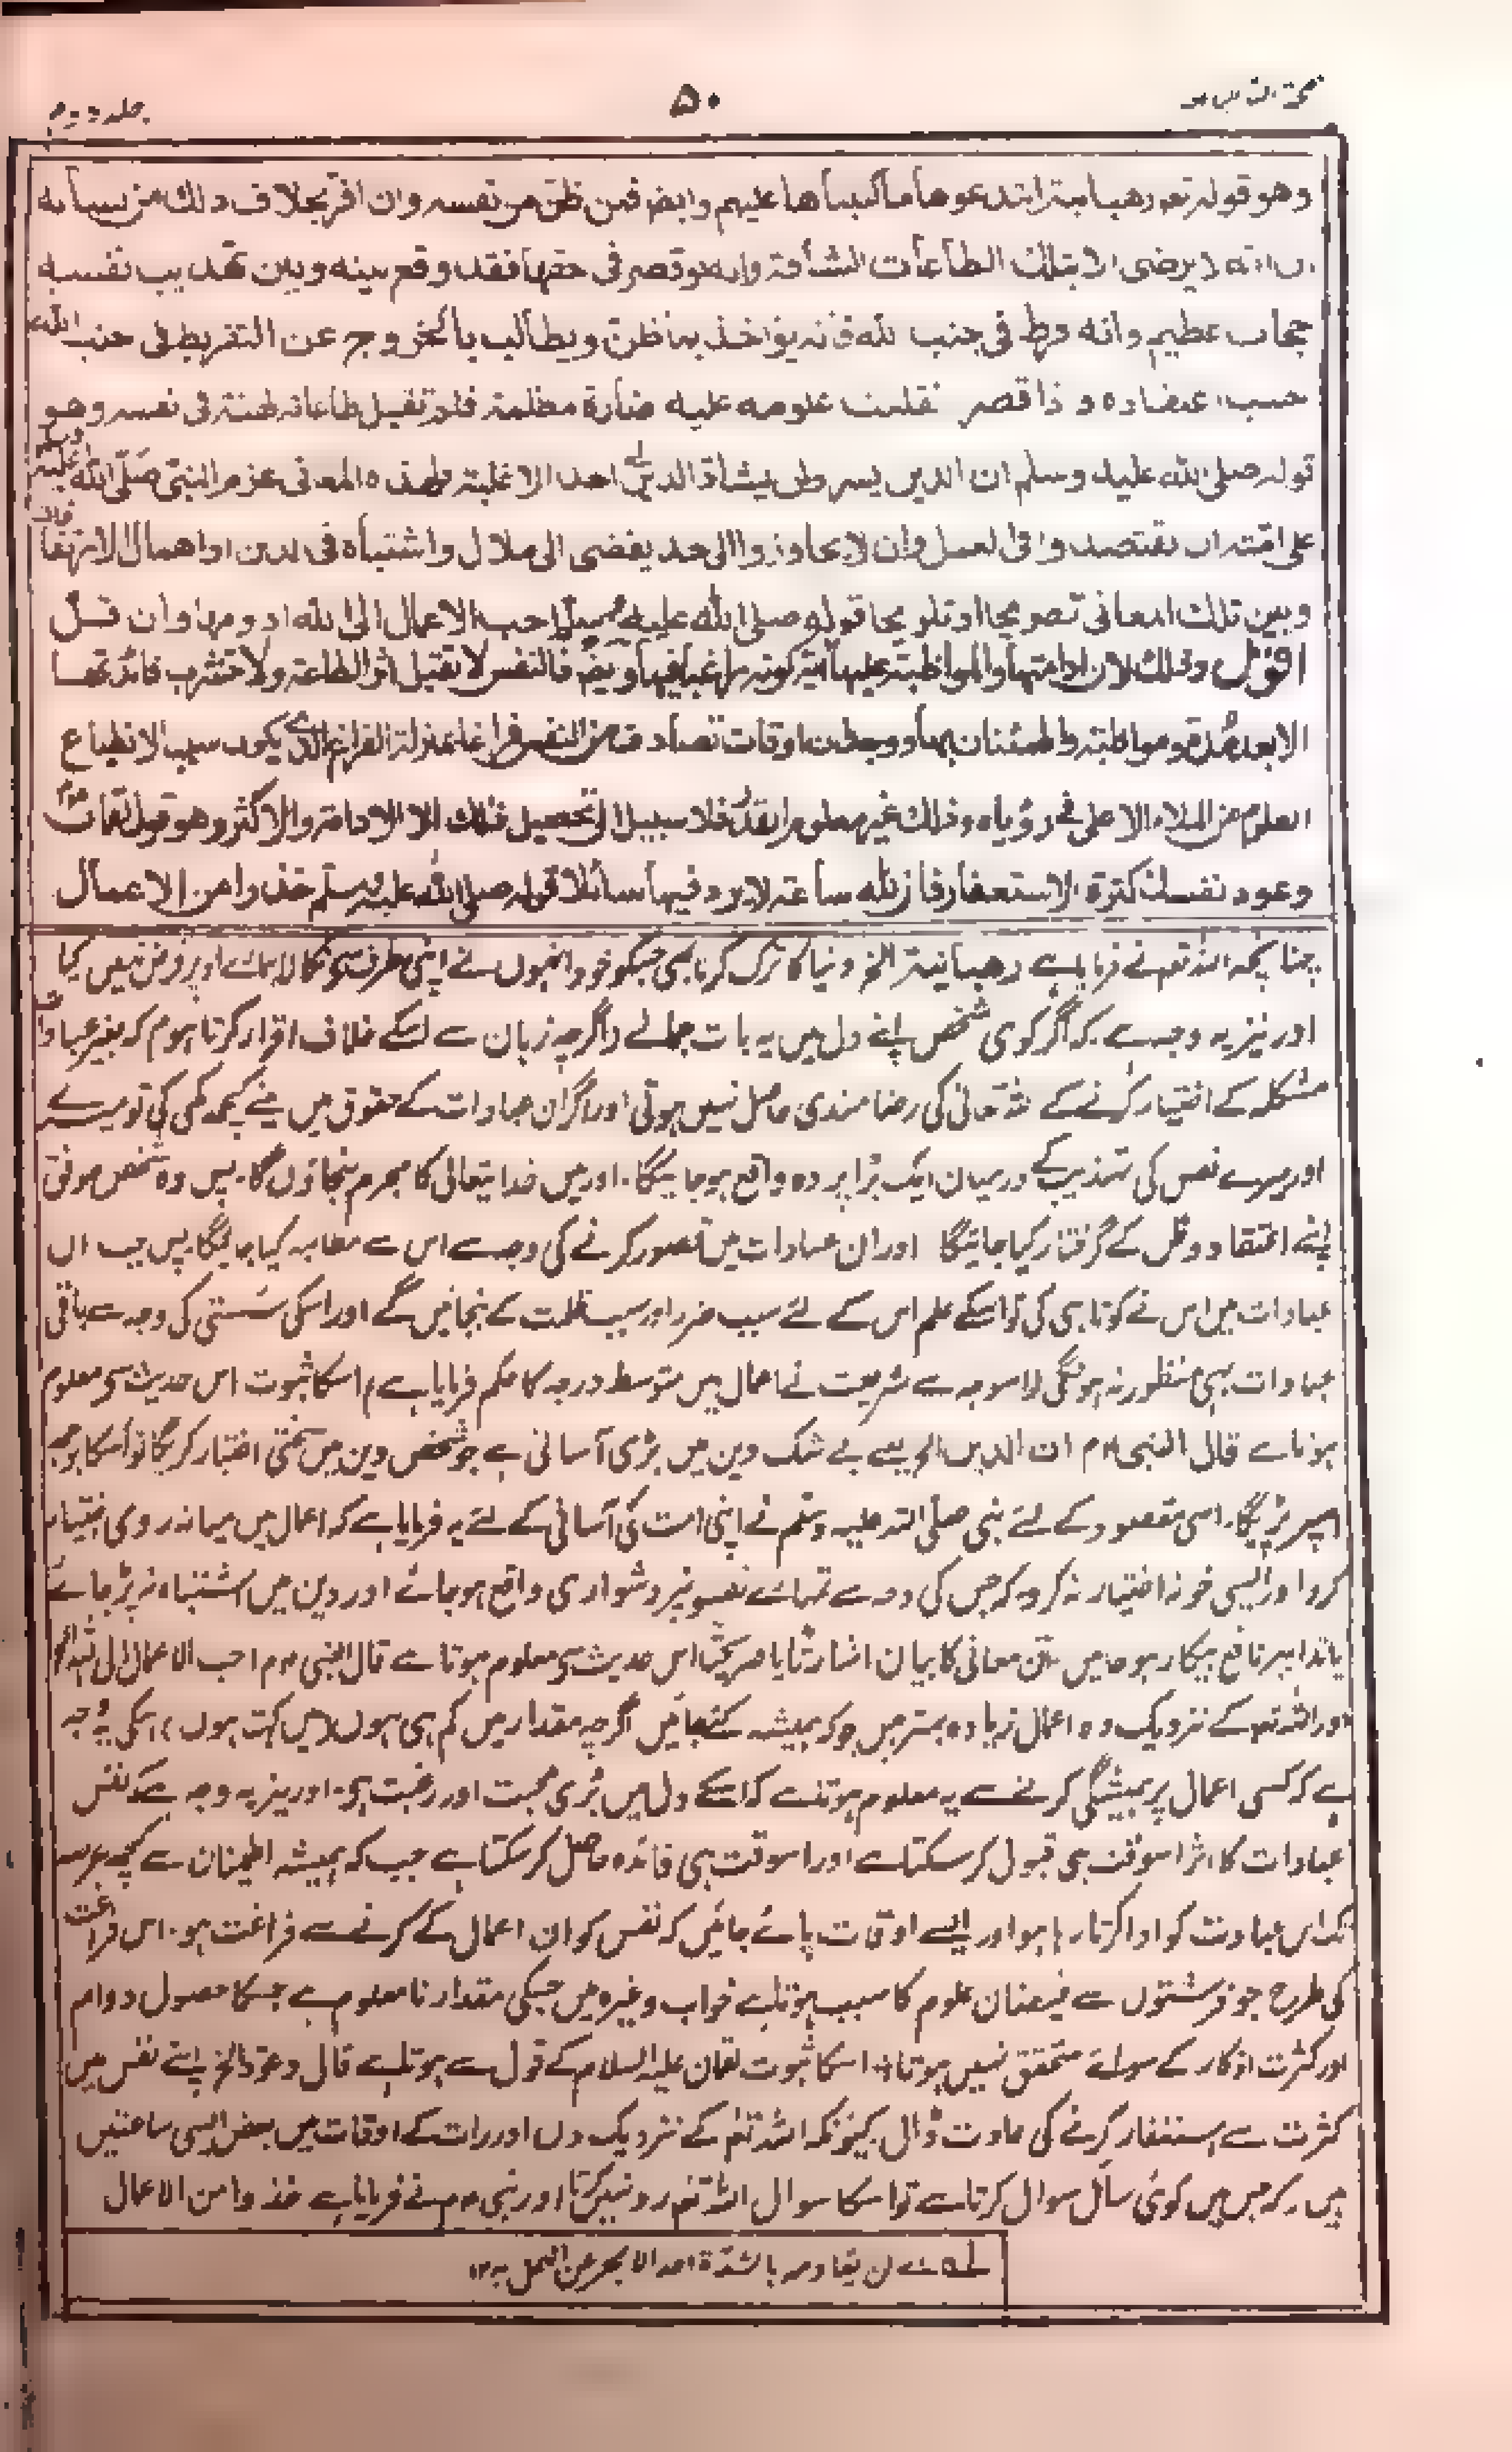 جلد دوم ۵۰
وهو قوله تعه رهبانية ابتدعوها ما كتبناها عليهم وايضا فمن ظن من نفسه وان اقر بخلاف ذلك من لسانه
ان الله لا يرضى الا بتلك الطاعات الشاقة وانه لو قصر فى حقها فقد وقع بينه وبين تهذيب نفسه
حجاب عظيم وانه فرط فى جنب الله فانه يؤاخذ بما ظن ويطالب بالخروج عن التفريط فى جنب الله
حسب اعتقاده و ذا قصر نقلبت علومه عليه ضارة مظلمة فلم تقبل طاعاته لهنة فى نفسه وهو
قوله صلى الله عليه وسلم ان الدين يسر ولن يشاد الدين احد الا غلبه ولهذه المعانى عزم النبى صلى الله عليه وسلم
على امته ان يقتصدوا فى العمل وان لا يجاوزوا الى حد يفضى الى ملال واشتباه فى الدين او اهمال الارتفاقات
وبين تلك المعانى تصريحا او تلويحا قوله صلى الله عليه وسلم احب الاعمال الى الله ادومها وان قل
اقول وذلك لان ادامتها والمواظبة عليها آية كونه راغبا فيها وايضا فالنفس لا تقبل اثر الطاعة ولا تتشرب فائدتها
الا بعد مدة ومواظبة واطمئنان بها ووجدان اوقات تصادف من النفس فراغا بمنزلة الفراغ الذى يكون سبب الانطباع
العلوم من الملاء الاعلى فى رؤياه وذلك غير معلوم القدر فلا سبيل الى تحصيل ذلك الا الادامة والاكثار وهو قول لقمان
وعود نفسك كثرة الاستغفار فان لله ساعة لا يرد فيها سائلا قوله صلى الله عليه وسلم خذوا من الاعمال
چنانچہ اللہ تعہ نے فرمایا ہے رهبانية الخ دنیا کا ترک کرنا بھی جسکو خود انہوں نے اپنی طرف سے نکالا ہمنے اوپر فرض نہیں کیا
اور نیز یہ وجہ ہے کہ اگر کوی شخص اپنے دل میں یہ بات جمالے (اگرچہ زبان سے اسکے خلاف اقرار کرتا ہو) کہ بغیر عبادات
مشکلہ کے اختیار کرنے کے اللہ تعالی کی رضامندی حاصل نہیں ہوتی اور اگر ان عبادات کے حقوق میں مینے کچھ کمی کی تو میرے
اور میرے نفس کی تہذیب کے درمیان ایک بڑا پردہ واقع ہو جائیگا۔ اور میں خدا یتعالی کا مجرم بنجاؤں گا۔ پس وہ شخص موافق
اپنے اعتقاد و ظن کے گرفتار کیا جائیگا اور ان عبادات میں قصور کرنے کی وجہ سے اس سے مطالبہ کیا جائیگا۔ پس جب ان
عبادات میں اس نے کوتاہی کی تو اسکے علم اس کے لئے سبب ضرر اور سبب ظلمت کے بنجائیں گے اور اسکی سستی کی وجہ سے باقی
عبادات بھی منظور نہ ہونگی اسوجہ سے شریعت نے اعمال میں متوسط درجہ کا حکم فرمایا ہے اسکا ثبوت اس حدیث سے معلوم
ہوتا ہے قال النبى ان الدين الخ یسے بے شک دین میں بڑی آسانی ہے جو شخص دین میں سختی اختیار کریگا تو اسکا بوجھ
اسپر پڑیگا۔ اسی مقصود کے لئے نبی صلی اللہ علیہ وسلم نے اپنی امت کی آسانی کے لئے یہ فرمایا ہے کہ اعمال میں میانہ روی اختیار
کرو اور ایسی خو نہ اختیار نہ کرو کہ جس کی وجہ سے تمہارے نفسو نپر دشواری واقع ہوجائے اور دین میں اشتباہ نہ پڑ جائے
یا تدابیر نافع بیکار ہو جایں ان معانی کا بیان اشارتا یا صریحا اس حدیث سے معلوم ہوتا ہے قال النبى احب الاعمال الى الله الخ
اور اللہ تعہ کے نزدیک وہ اعمال زیادہ بہتر ہیں جو کہ ہمیشہ کئے جائیں اگرچہ مقدار میں کم ہی ہوں (میں کہتا ہوں) اسکی یہ وجہ
ہے کہ کسی اعمال پر ہمیشگی کرنے سے یہ معلوم ہوتا ہے کہ اسکے دل میں بڑی محبت اور رغبت ہے۔ اور نیز یہ وجہ ہے کہ نفس
عبادات کا اثر اسوقت ہی قبول کر سکتا ہے اور اسوقت ہی فائدہ حاصل کر سکتا ہے جب کہ ہمیشہ اطمینان سے کچھ عرصہ
تک اس عبادت کو ادا کرتا رہا ہو اور ایسے اوقات پائے جائیں کہ نفس کو ان اعمال کے کرنے سے فراغت ہو۔ اس فراغت
کی طرح جو فرشتوں سے فیضان علوم کا سبب ہوتا ہے خواب وغیرہ میں جسکی مقدار نا معلوم ہے جسکا حصول دوام
اور کثرت اذکار کے سوائے متحقق نہیں ہوتا اسکا ثبوت لقمان علیہ السلام کے قول سے ہوتا ہے قال وعود الخ اپنے نفس میں
کثرت سے استغفار کرنے کی عادت ڈال کیونکہ اللہ تعہ کے نزدیک دن اور رات کے اوقات میں بعض ایسی ساعتیں
ہیں۔ کہ جس میں کوئی سائل سوال کرتا ہے تو اسکا سوال اللہ تعہ رد نہیں کرتا اور نبی نے فرمایا ہے خذوا من الاعمال
لن يقاومه بالشدة احد الا عن العمل به ۱۲